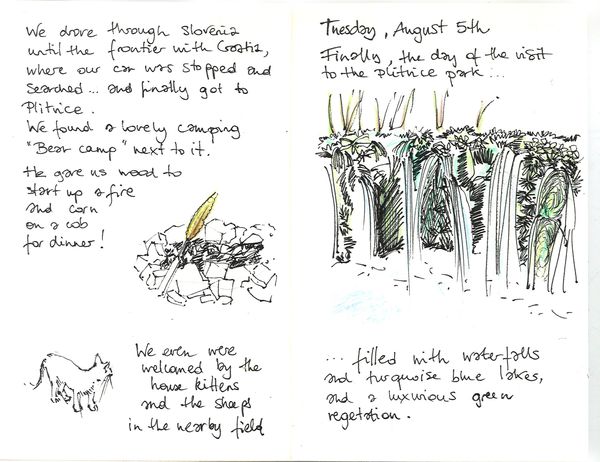 We drove through Slovenia
until the frontier with Croatia,
where our car was stopped and
searched... and finally got to
Plitvice.
We found a lovely camping
"Bear camp" next to it.
He gave us wood to
start up a fire
and corn
on a cob
for dinner!
We even were
welcomed by the
house kittens
and the sheeps
in the nearby field
Tuesday, August 5th
Finally, the day of the visit
to the Plitvice park...
... filled with waterfalls
and turquoise blue lakes,
and a luxurious green
vegetation.